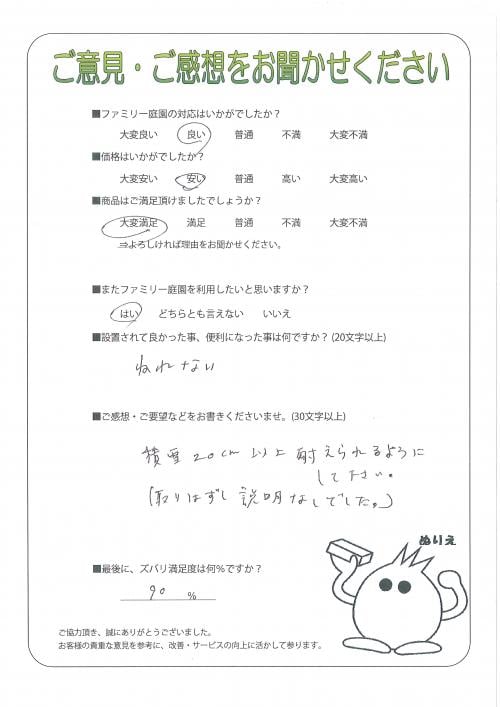 ご意見・ご感想をお聞かせください
■ファミリー庭園の対応はいかがでしたか？
大変良い 良い 普通 不満 大変不満
■価格はいかがでしたか？
大変安い 安い 普通 高い 大変高い
■商品はご満足頂けましたでしょうか？
大変満足 満足 普通 不満 大変不満
⇒よろしければ理由をお聞かせください。
■またファミリー庭園を利用したいと思いますか？
はい どちらとも言えない いいえ
■設置されて良かった事、便利になった事は何ですか？(20文字以上)
ぬれない
■ご感想・ご要望などをお書きくださいませ。(30文字以上)
積雪20cm以上耐えられるように
して下さい。
(取りはずし説明なしでした。)
ぬりえ
■最後に、ズバリ満足度は何%ですか？
90 %
ご協力頂き、誠にありがとうございました。
お客様の貴重な意見を参考に、改善・サービスの向上に活かして参ります。